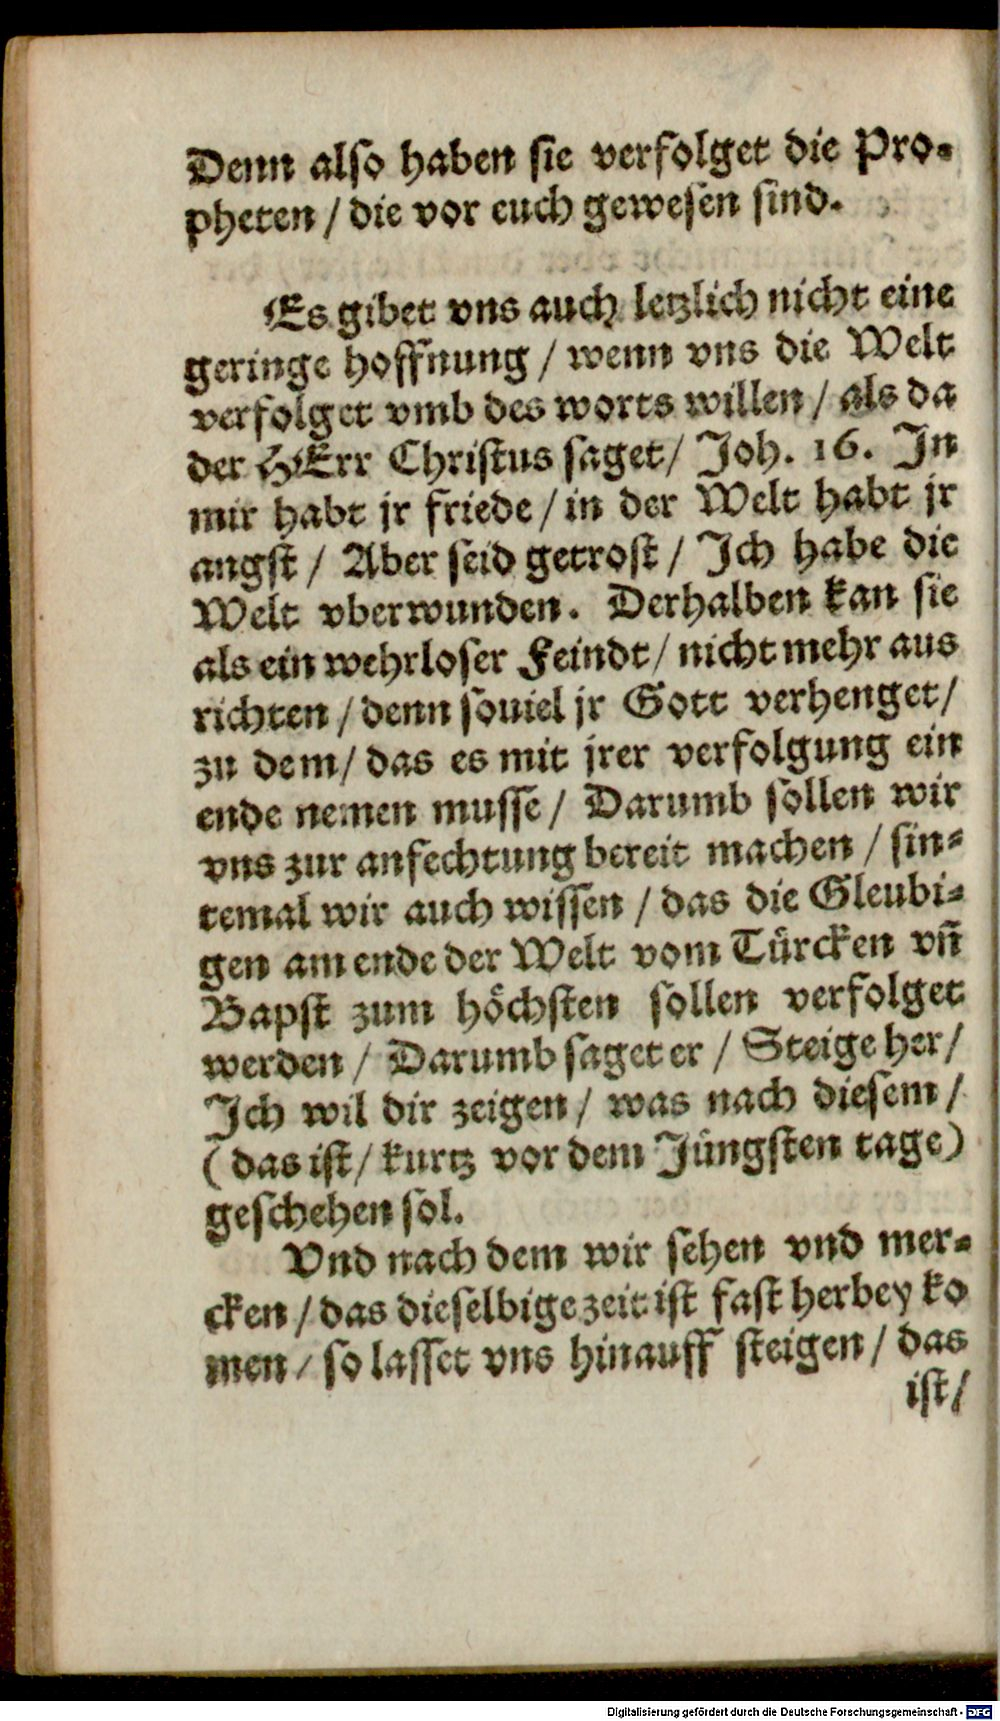 Denn also haben sie verfolget die Pro-
pheten / die vor euch gewesen sind.
Es gibet vns auch letzlich nicht eine
geringe hoffnung / wenn vns die Welt
verfolget vmb des worts willen / als da
der HErr Christus saget / Joh. 16. In
mir habt jr friede / in der Welt habt jr
angst / Aber seid getrost / Ich habe die
Welt vberwunden. Derhalben kan sie
als ein wehrloser Feindt / nicht mehr aus
richten / denn souiel jr Gott verhenget /
zu dem / das es mit jrer verfolgung ein
ende nemen musse / Darumb sollen wir
vns zur anfechtung bereit machen / sin-
temal wir auch wissen / das die Gleubi-
gen am ende der Welt vom Türcken vñ
Bapst zum höchsten sollen verfolget
werden / Darumb saget er / Steige her /
Ich wil dir zeigen / was nach diesem /
(das ist / kurtz vor dem Jüngsten tage)
geschehen sol.
Vnd nach dem wir sehen vnd mer-
cken / das dieselbige zeit ist fast herbey ko
men / so lasset vns hinauff steigen / das
ist /
Digitalisierung gefördert durch die Deutsche Forschungsgemeinschaft - DFG